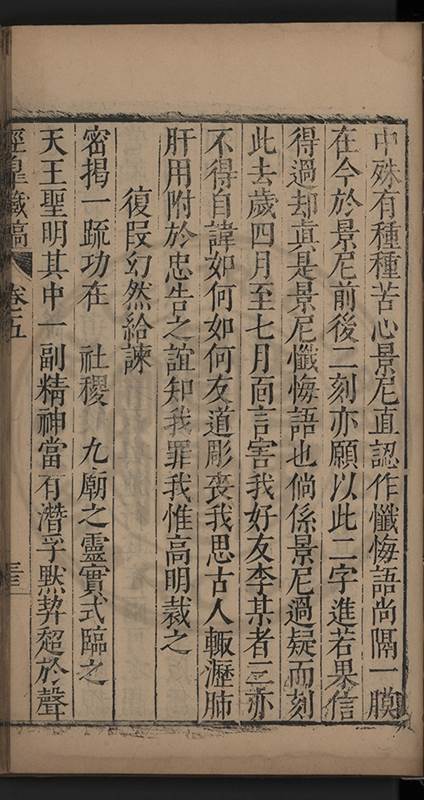 中殊有種種苦心景尼直認作懺悔語尚隔一膜
在今於景尼前後二刻亦願以此二字進若果信
得過却真是景尼懺悔語也倘係景尼過疑而刻
此去歲四月至七月面言害我好友李某者三亦
不得自諱如何如何友道彫喪我思古人輙瀝肺
肝用附於忠告之誼知我罪我惟高明裁之
復段幻然給諫
密揭一疏功在 社稷 九廟之靈實式臨之
天王聖明其中一副精神當有潛孚默契超於聲
卷五
三